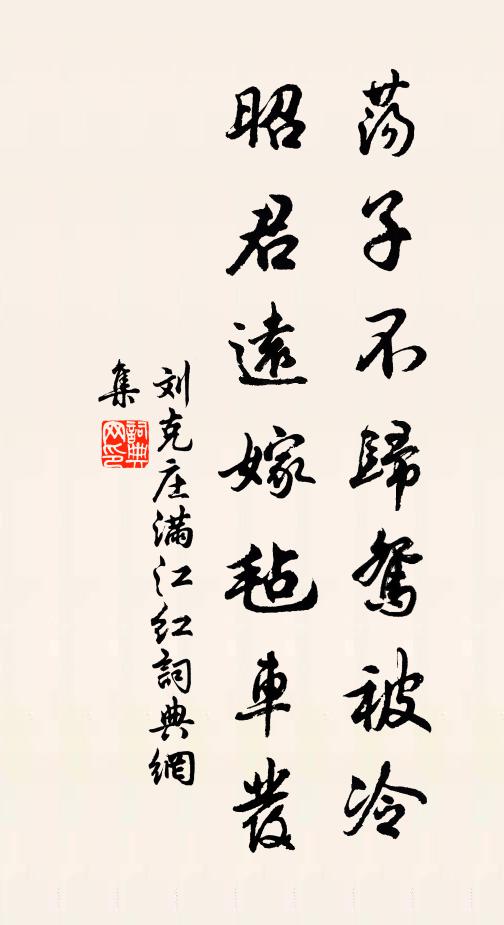 荡子不歸鴛被冷
昭君遠嫁毡車發
刘克庄满江红詞典網
集
詞典
网印